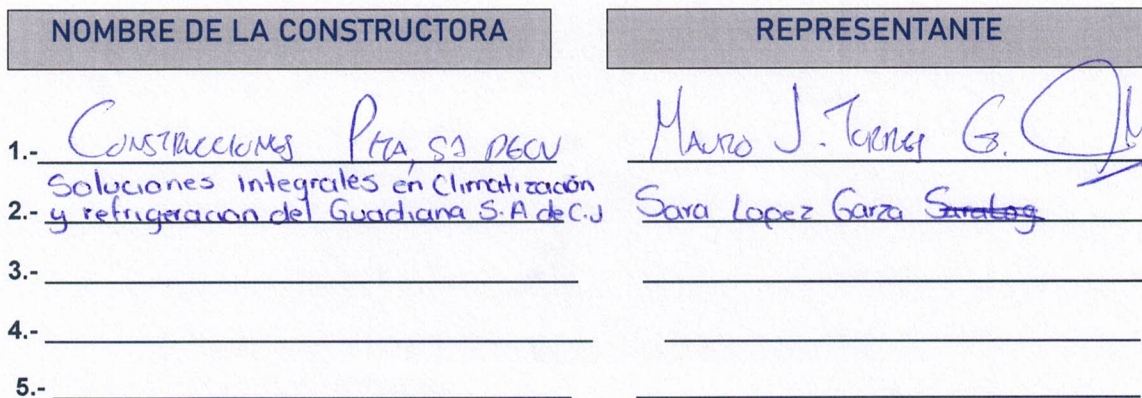 NOMBRE DE LA CONSTRUCTORA REPRESENTANTE
1.- CONSTRUCCIONES SA DECV MAURO J. TORRES G.
Soluciones integrales en Climatización
2.- y refrigeracion del Guadiana S.A de C.V Sara Lopez Garza
3.-
4.-
5.-